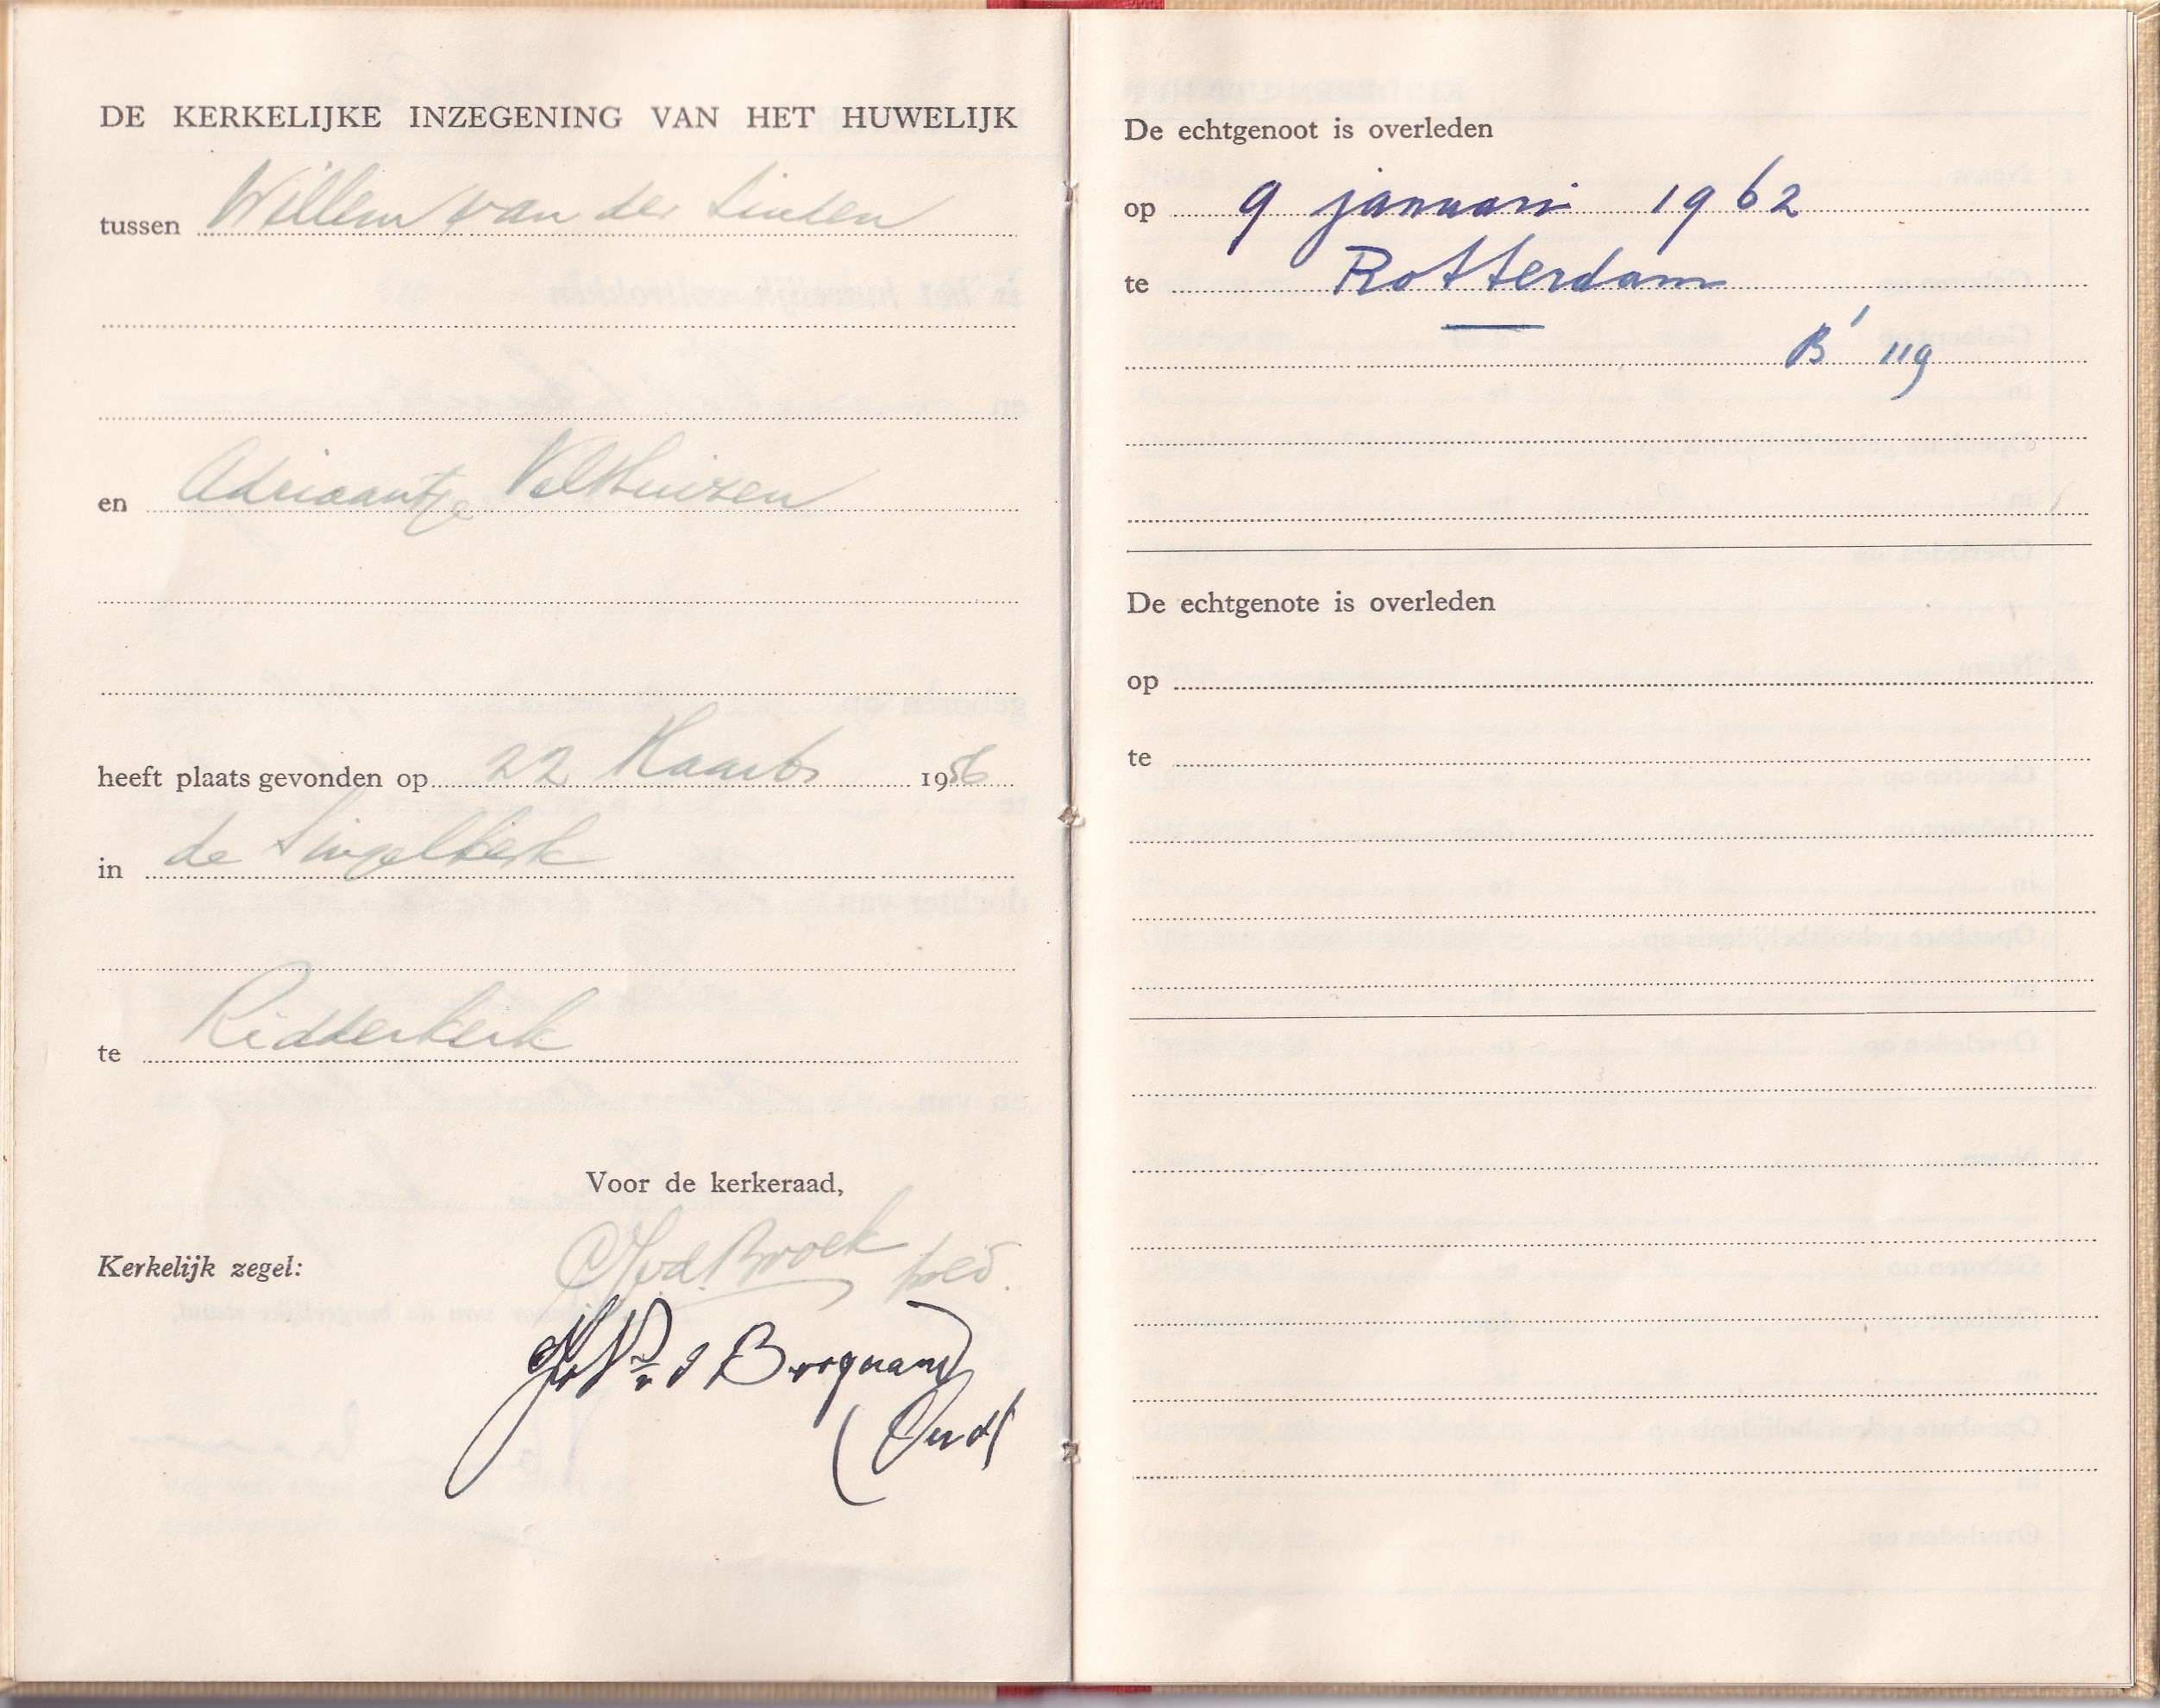 DE KERKELIJKE INZEGENING VAN HET HUWELIJK
tussen Willem van der Linden
en Adriaantje Velthuizen
heeft plaats gevonden op 22 Maart 1956
in de Singelkerk
te Ridderkerk
Voor de kerkeraad,
Kerkelijk zegel:
vd Broek
De echtgenoot is overleden
op 9 januari 1962
te Rotterdam
B 119
De echtgenote is overleden
op
te